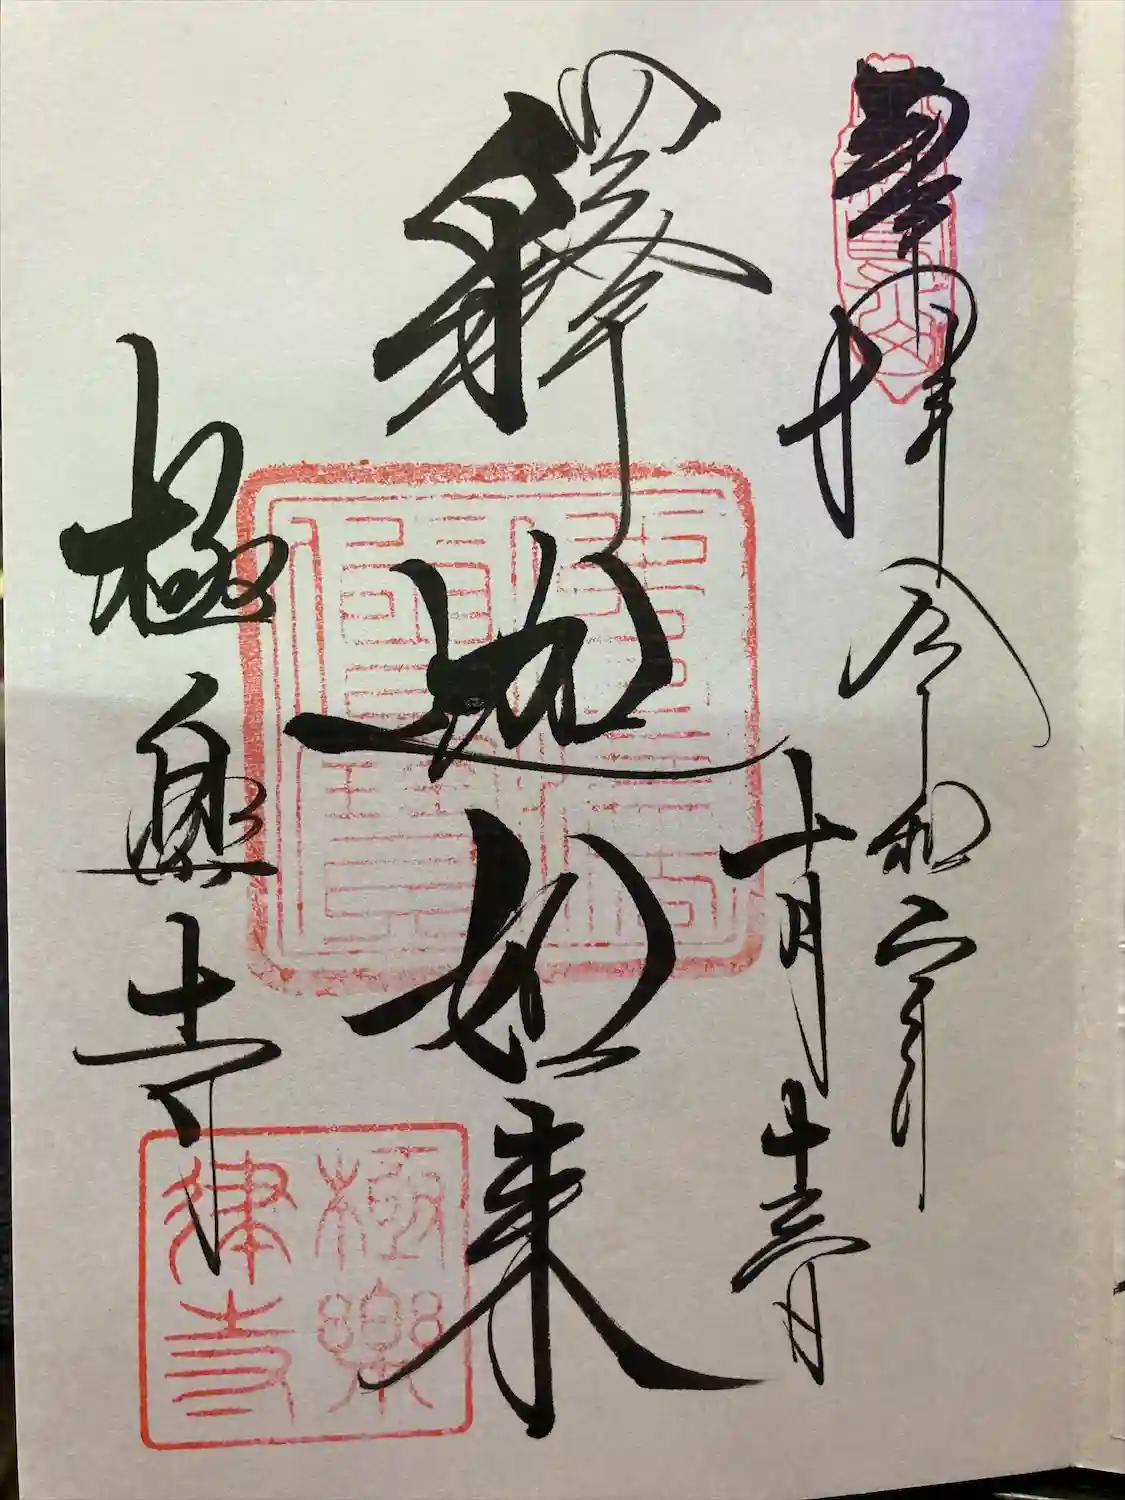 奉拝
令和年
十月十三日
釋迦如来
極楽寺
極樂
律寺